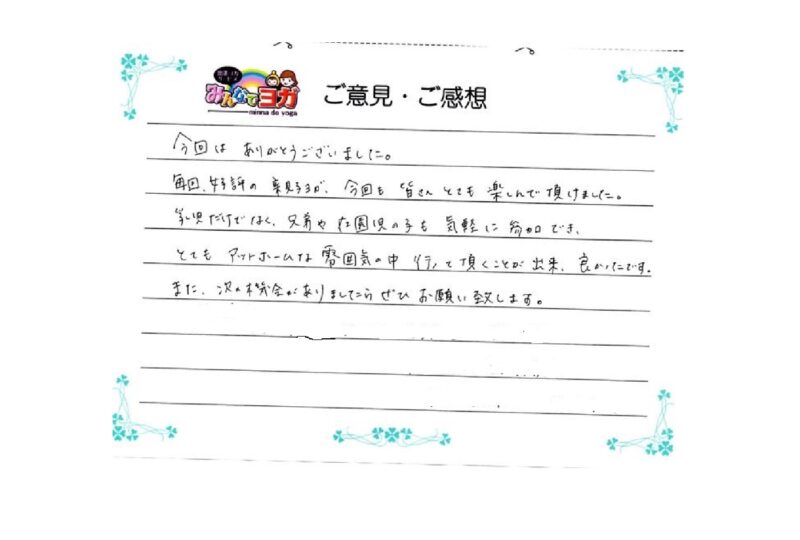 みんなでヨガ
minna de yoga
ご意見・ご感想
今回は ありがとうございました。
毎回、好評の 親子ヨガ、今回も 皆さん とても 楽しんで頂けました。
乳児だけでなく、兄弟や 在園児の子も 気軽に 参加でき、
とても アットホームな 雰囲気の中 行って頂くことが出来、良かったです。
また、次の機会がありましたら ぜひ お願い致します。